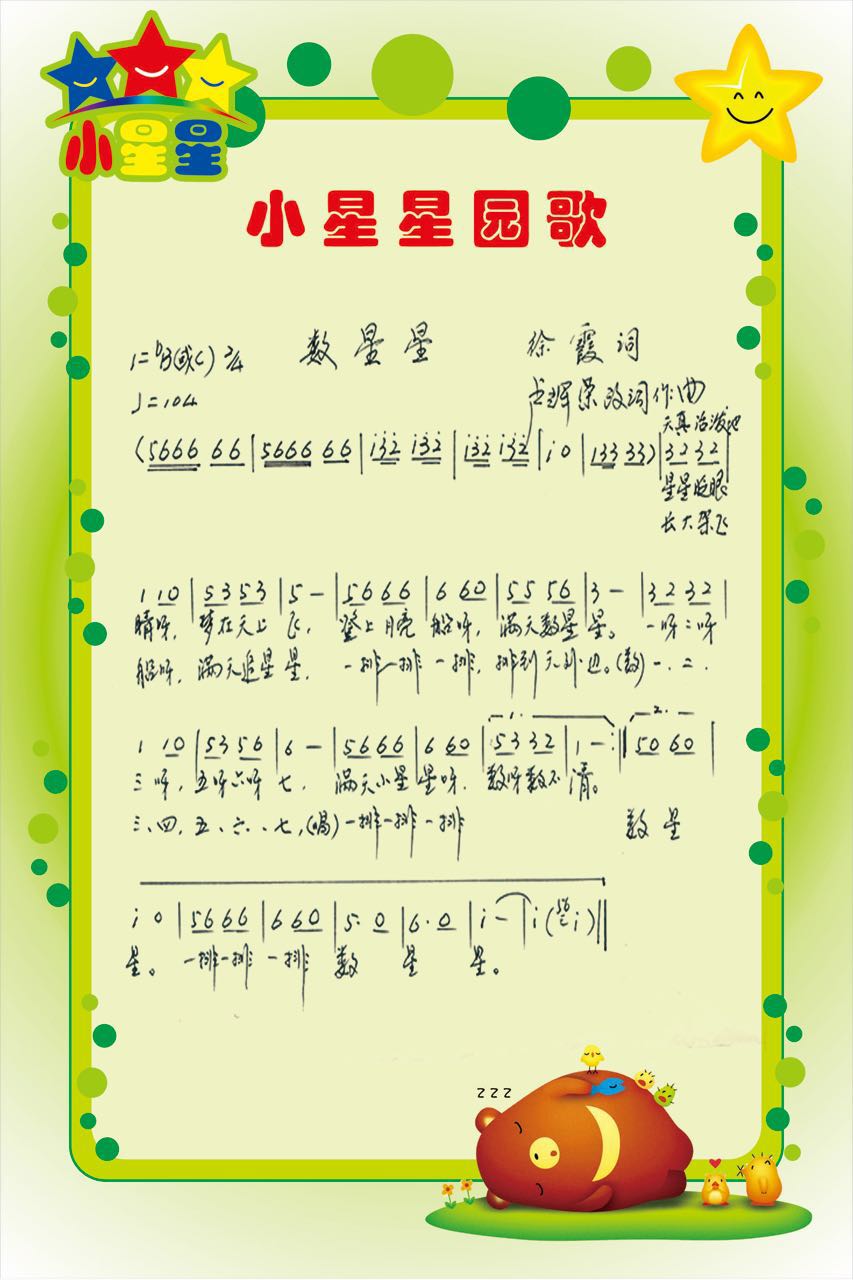 小星星
小星星园歌
1=♭B(或C) 2/4 数星星 徐霞词
♩=104 荣改词作曲
天真活泼地
(5666 66|5666 66|i32 i32|i32 i32|i 0|133 33)|32 32|
星星眨眼
长大架飞
1 10|53 53|5 -|56 66|6 60|55 56|3 -|32 32|
睛呀,梦在天上飞,登上月亮船呀,满天数星星。一呀二呀
船呀,满天追星星,一排一排一排,排到天边。(数)一、二、
1. 2.
1 10|53 56|6 -|56 66|6 60|53 32|1 -:||50 60|
三呀,五呀六呀七,满天小星星呀,数呀数不清。
三、四、五、六、七,(唱)一排一排一排 数星
i 0|56 66|6 60|5·0|6·0|i -|i(56 i)||
星。一排一排一排数星星。
z z z